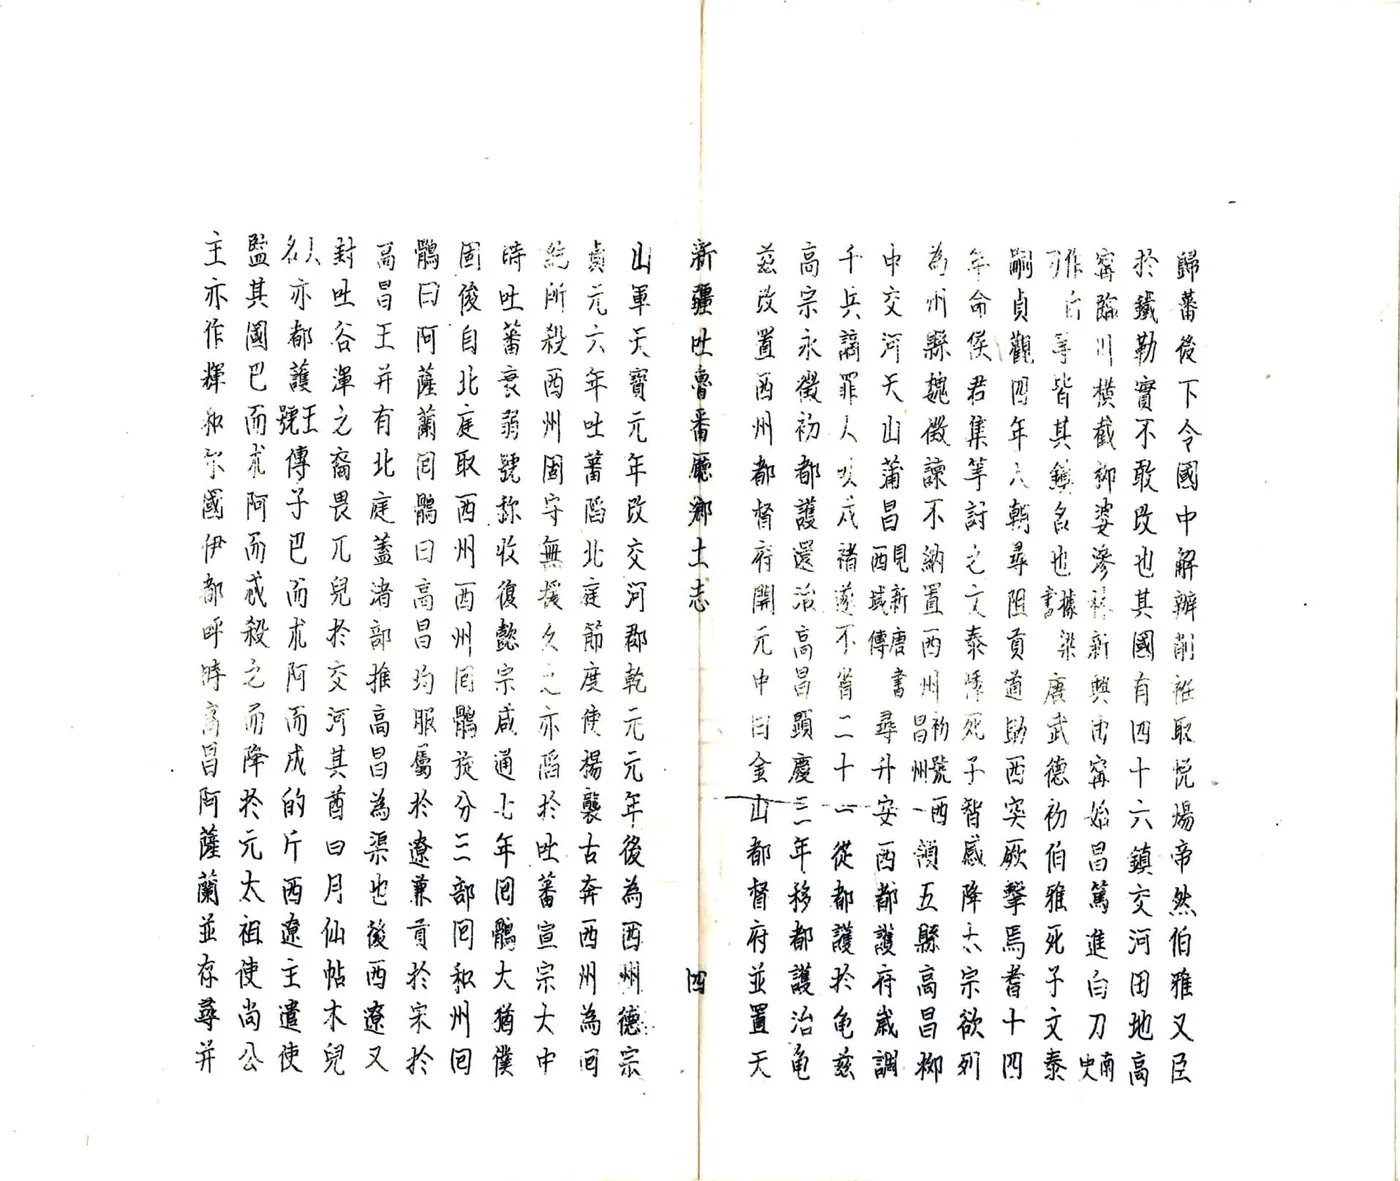 歸蕃後下令國中解辮削袵取悅煬帝然伯雅又臣
於鐵勒實不敢改也其國有四十六鎮交河田地高
甯臨川橫截柳婆滲林新興甯始昌篤進白刀南史
作白等皆其鎮名也據梁書唐武德初伯雅死子文泰
嗣貞觀四年入朝尋阻貢道助西突厥擊焉耆十四
年命侯君集等討之文泰悸死子智盛降太宗欲列
為州縣魏徵諫不納置西州初號西昌州一領五縣高昌柳
中交河天山蒲昌見新唐書西域傳尋升安西都護府歲調
千兵謫罪人以戍褚遂不省二十一從都護於龜茲
高宗永徽初都護還治高昌顯慶三年移都護治龜
茲改置西州都督府開元中曰金山都督府並置天
新疆吐魯番廳鄉土志
四
山軍天寶元年改交河郡乾元元年後為西州德宗
貞元六年吐蕃陷北庭節度使楊襲古奔西州為回
紇所殺西州固守無援久之亦陷於吐蕃宣宗大中
時吐蕃衰弱號稱收復懿宗咸通七年回鶻大酋僕
固俊自北庭取西州西州回鶻旋分二部回和州回
鶻曰阿薩蘭回鶻曰高昌均服屬於遼兼貢於宋於
高昌王并有北庭蓋諸部推高昌為渠也後西遼又
封吐谷渾之裔畏兀兒於交河其酋曰月仙帖木兒
亦都護王號傳子巴而朮阿而戌的斤西遼主遣使
監其國巴而朮阿而戒殺之而降於元太祖使尚公
主亦作輝和尔國伊都呼時高昌阿薩蘭並存尋并